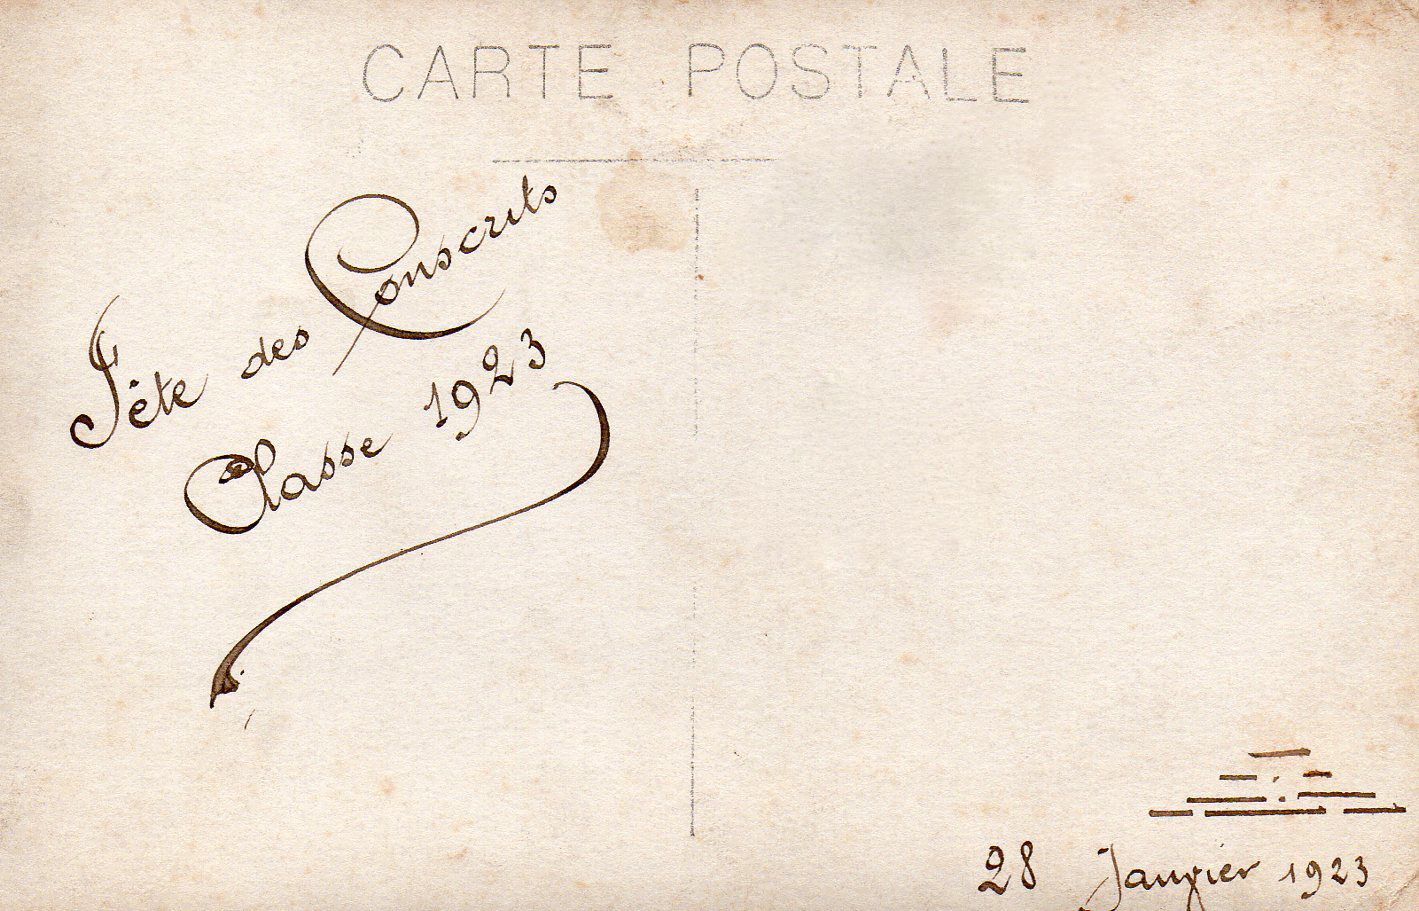 CARTE POSTALE
Fête des Conscrits
Classe 1923
28 Janvier 1923